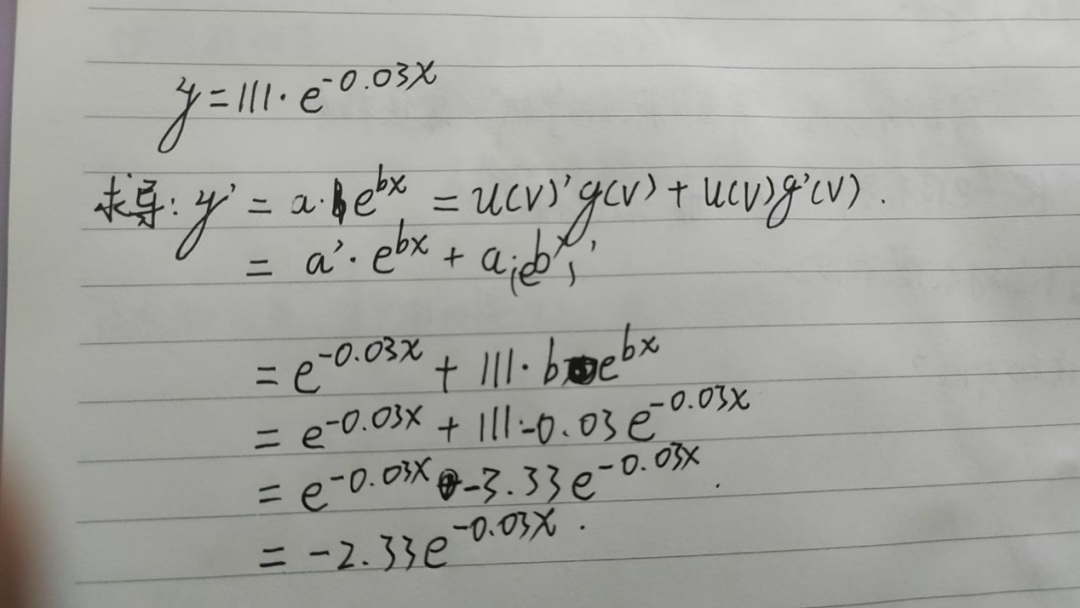 y=111·e^-0.03x
求导: y' = a·be^bx = u(v)'g(v) + u(v)g'(v).
= a'·e^bx + a(e^bx)'
= e^-0.03x + 111·b e^bx
= e^-0.03x + 111·-0.03e^-0.03x
= e^-0.03x -3.33e^-0.03x.
= -2.33e^-0.03x.